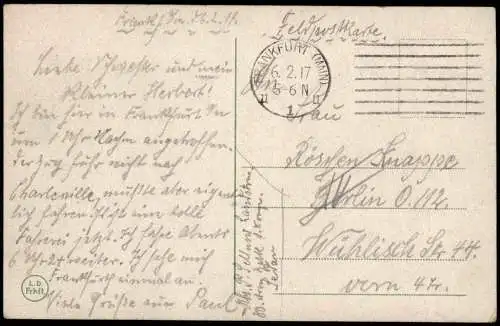 Frankfurt
Liebe Schwester und mein
kleiner Herbert!
Ich bin hier in Frankfurt
um 1 Uhr Nachm angetroffen.
der Zug fuhr nicht nach
Charleville, müßte aber eigent
lich fahren. Ist eine tolle
Fahrerei jetzt. Ich fahre Abends
6 Uhr weiter. Ich sehe mir
Frankfurt einmal an.
Viele Grüße euer Paul
L.D.
Frkft.
Feldpostkarte.
FRANKFURT (MAIN)
6.2.17
5-6 N
1
Frau
Röschen Knappe
Berlin O. 112.
Wühlisch Str 44.
vorn 4 Tr.
Sedan